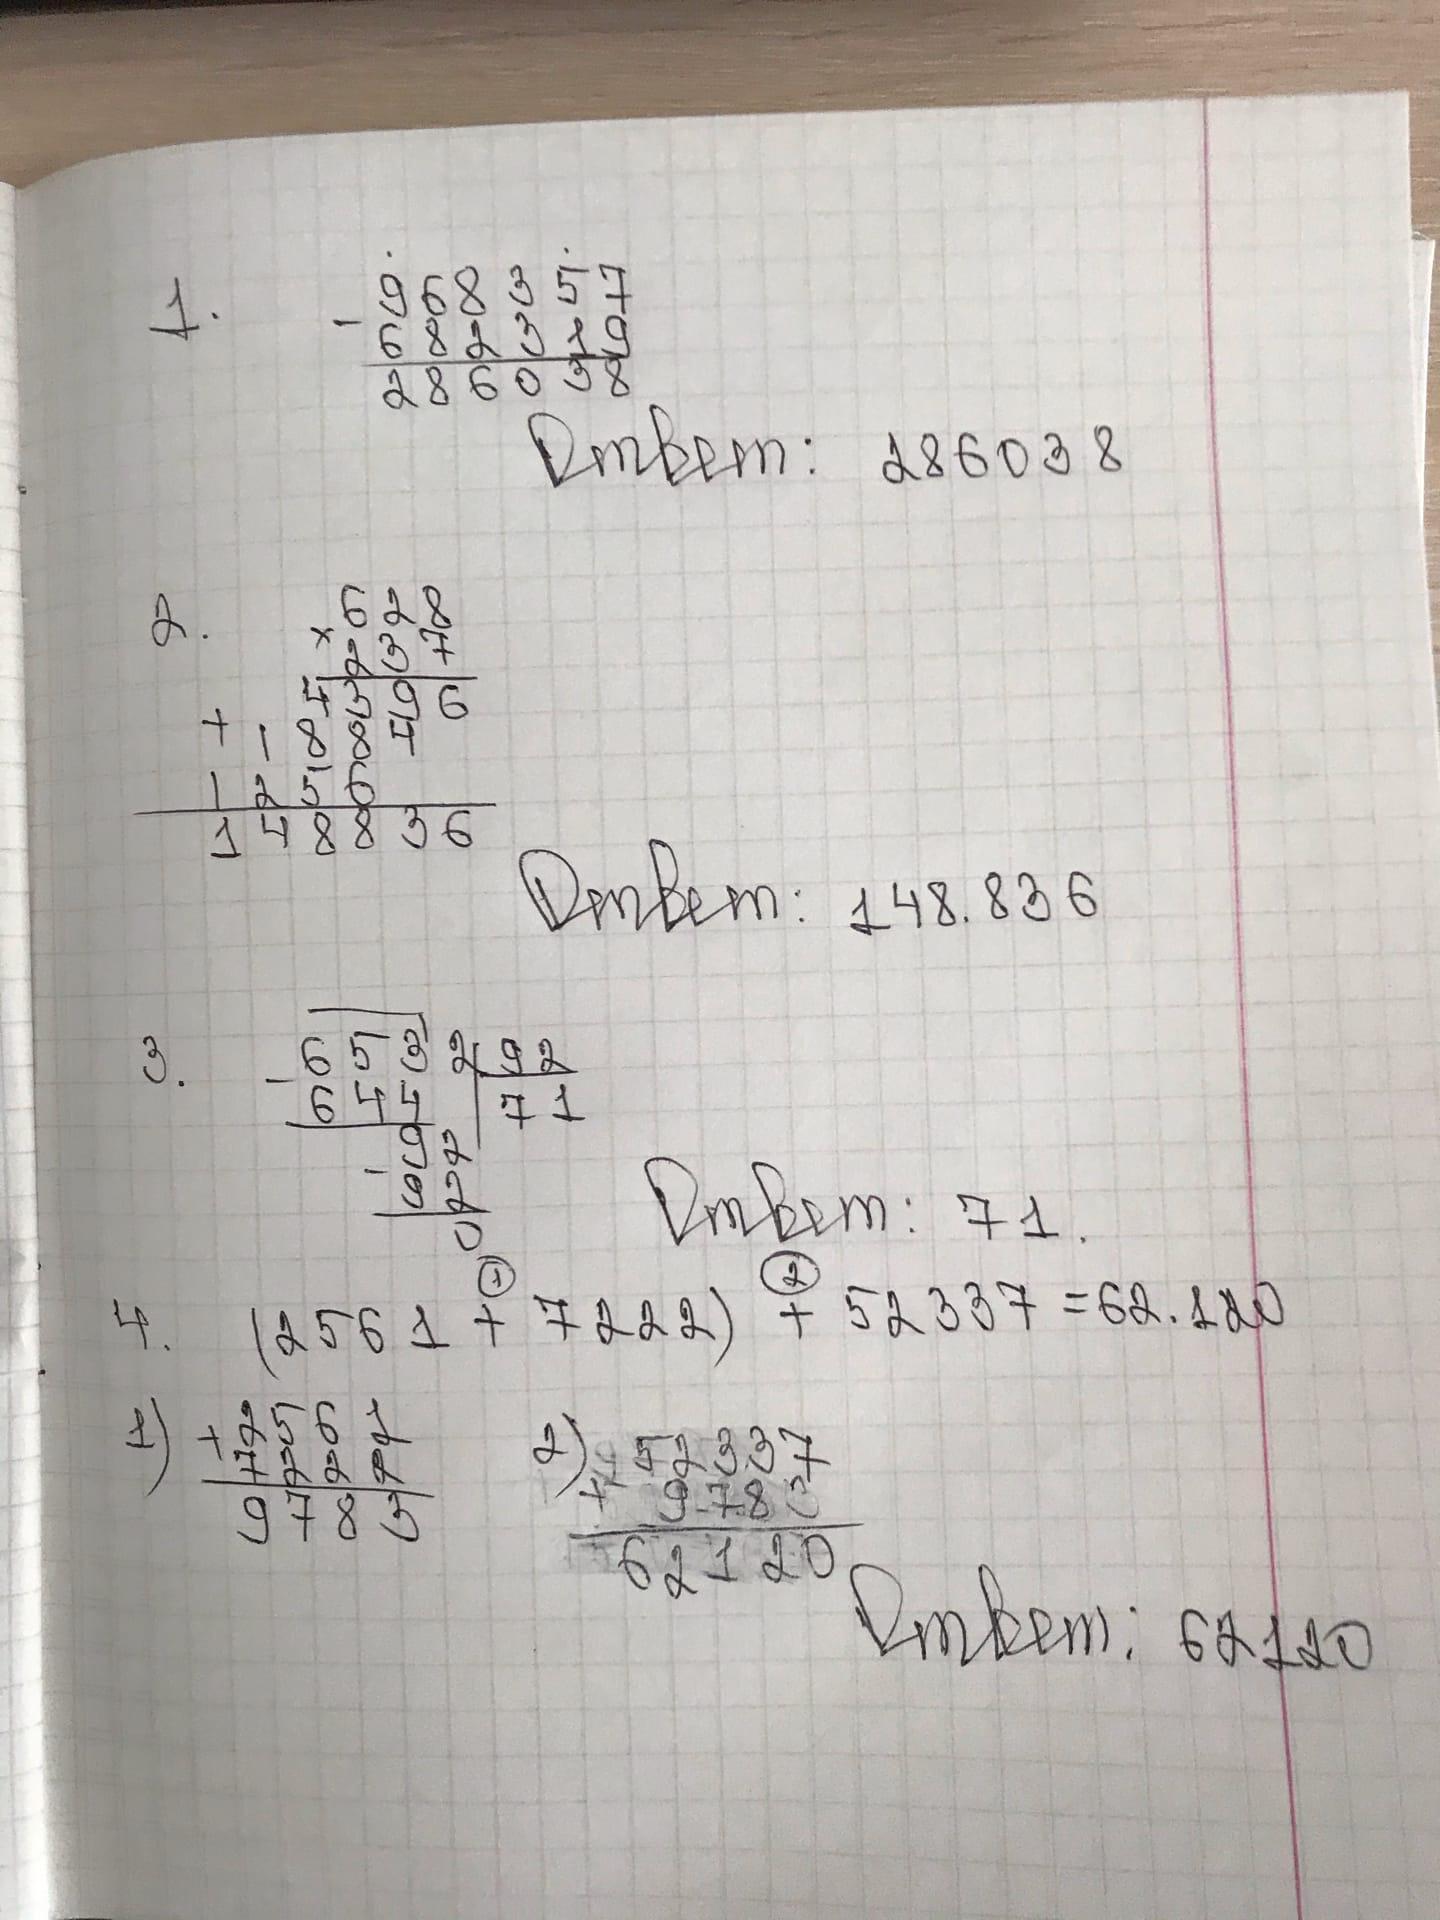 1.
- 968357
682319
286038
Ответ: 286038
2.
× 628
237
4396
+ 1884
1256
148836
Ответ: 148.836
3.
- 6532 92
644 71
- 92
92
0
Ответ: 71.
① ②
4. (2561 + 7222) + 52337 = 62.120
1) + 2561
7222
9783
2) + 52337
9783
62120
Ответ: 62120